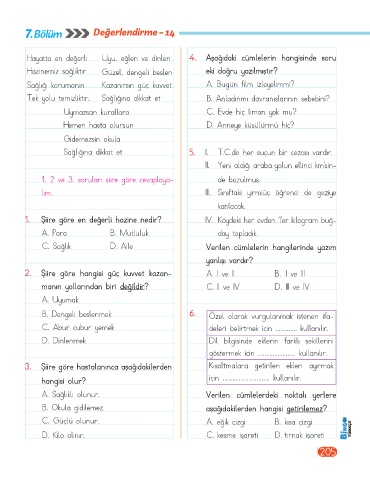 7.Bölüm Değerlendirme - 14
Hayatta en değerli
Hazinemiz sağlıktır
Sağlığı korumanın
Tek yolu temizliktir.
Uyu, eğlen ve dinlen
Güzel, dengeli beslen
Kazanırsın güç kuvvet
Sağlığına dikkat et
Uymazsan kurallara
Hemen hasta olursun
Gidemezsin okula
Sağlığına dikkat et
1, 2 ve 3. soruları şiire göre cevaplaya-
lım.
1. Şiire göre en değerli hazine nedir?
A. Para B. Mutluluk
C. Sağlık D. Aile
2. Şiire göre hangisi güç kuvvet kazan-
manın yollarından biri değildir?
A. Uyumak
B. Dengeli beslenmek
C. Abur cubur yemek
D. Dinlenmek
3. Şiire göre hastalanınca aşağıdakilerden
hangisi olur?
A. Sağlıklı olunur.
B. Okula gidilemez.
C. Güçlü olunur.
D. Kilo alınır.
4. Aşağıdaki cümlelerin hangisinde soru
eki doğru yazılmıştır?
A. Bugün film izleyelimmi?
B. Anladınmı davranışlarının sebebini?
C. Evde hiç limon yok mu?
D. Anneye küsülürmü hiç?
5. I. T.C.de her suçun bir cezası vardır.
II. Yeni aldığı araba yolun ellinci km'sin-
de bozulmuş.
III. Sınıftaki yirmiüç öğrenci de geziye
katılacak.
IV. Köydeki her evden Ter kilogram buğ-
day topladık.
Verilen cümlelerin hangilerinde yazım
yanlışı vardır?
A. I ve II B. I ve III
C. II ve IV D. III ve IV
6. Özel olarak vurgulanmak istenen ifa-
deleri belirtmek için ............ kullanılır.
Dil bilgisinde eklerin farklı şekillerini
göstermek için .................... kullanılır.
Kısaltmalara getirilen ekleri ayırmak
için ........................ kullanılır.
Verilen cümlelerdeki noktalı yerlere
aşağıdakilerden hangisi getirilemez?
A. eğik çizgi B. kısa çizgi
C. kesme işareti D. tırnak işareti
205